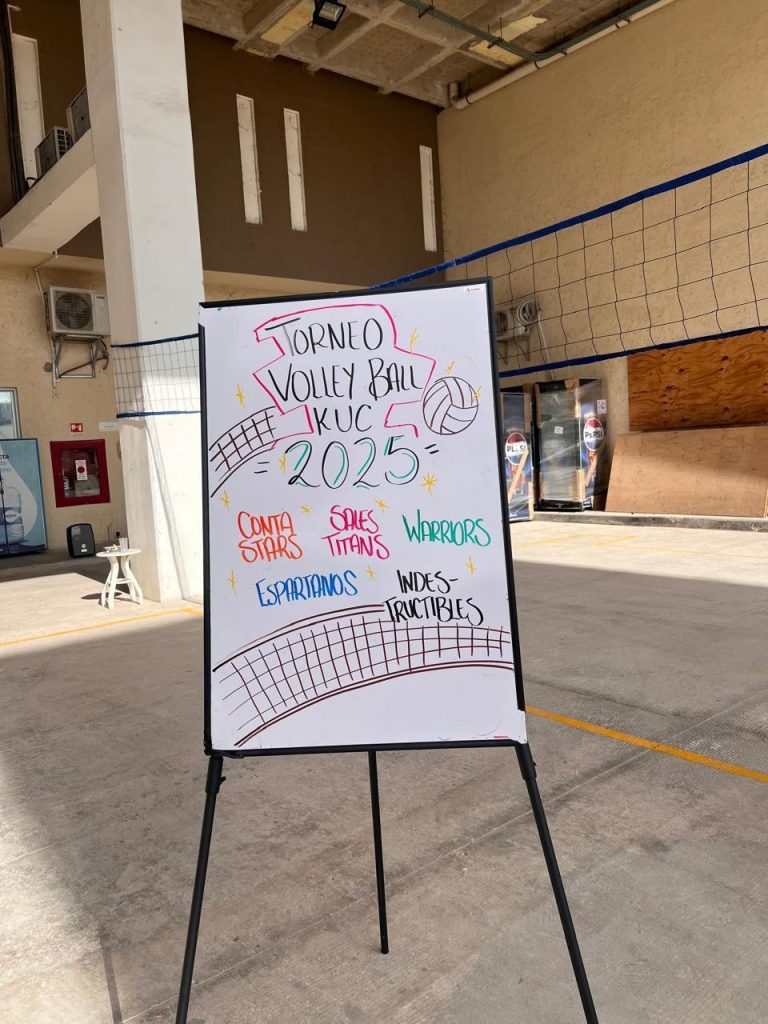 TORNEO
VOLLEY BALL
KUC
2025
CONTA
STARS
SALES
TITANS
WARRIORS
ESPARTANOS
INDES-
TRUCTIBLES
PEPSI